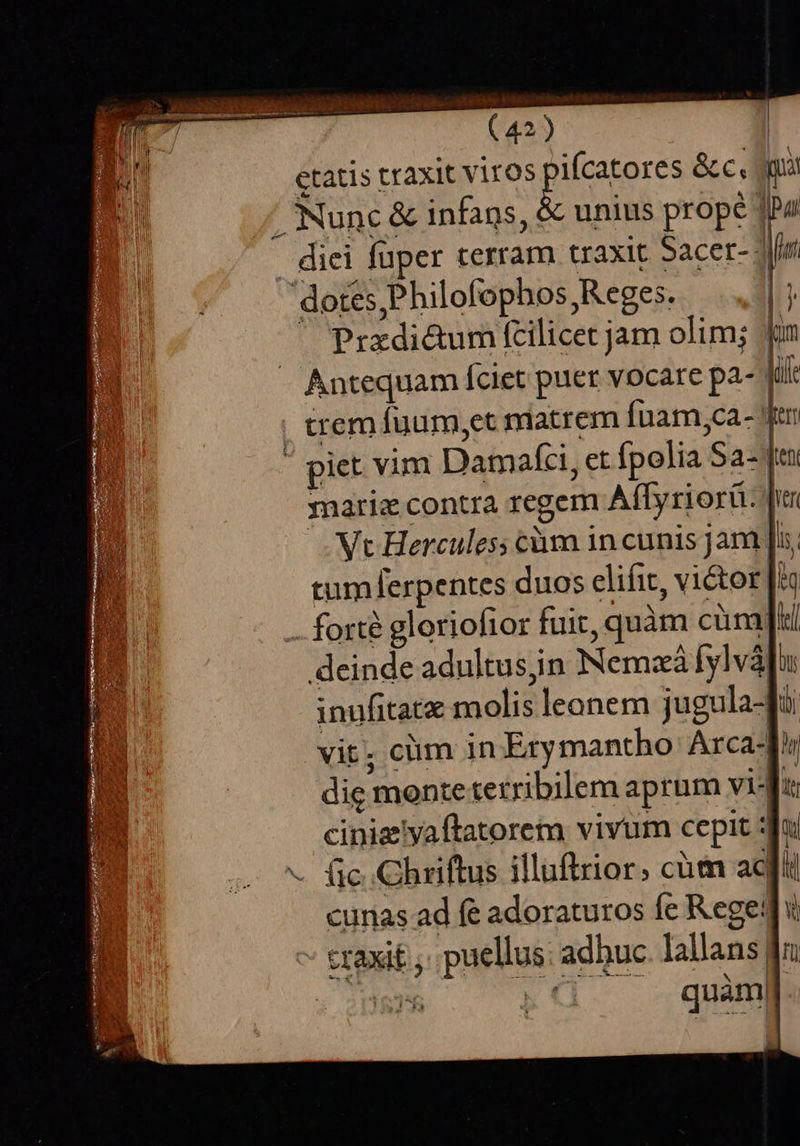 (42)
etatis traxit viros piſcatores &c.
Nunc & infans, & unius propè
diei ſuper terram traxit Sacer-
dotes, Philoſophos, Reges.
Prædictum ſcilicet jam olim;
Antequam ſciet puer vocare pa-
trem ſuum, et matrem ſuam, ca-
piet vim Damaſci, et ſpolia Sa-
mariæ contra regem Aſſyriorũ.
Vt Hercules, cùm in cunis jam
tum ſerpentes duos eliſit, victor
fortè glorioſior fuit, quàm cùm
deinde adultus, in Nemæâ ſylvâ
inuſitatæ molis leonem jugula-
vit, cùm in Erymantho Arca-
die monte terribilem aprum vi-
ciniæ vaſtatorem vivum cepit:
ſic Chriſtus illuſtrior, cùm ad
cunas ad ſe adoraturos ſe Reges
traxit, puellus adhuc lallans
quàm